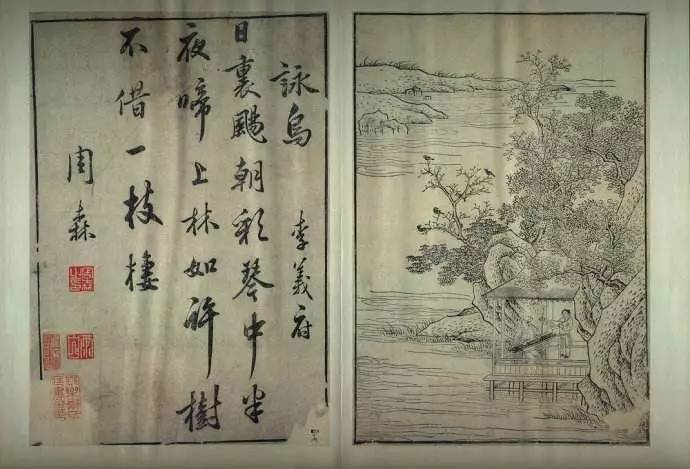 詠烏
李義府
日裏颺朝彩琴中半
夜啼上林如許樹
不借一枝棲
周森